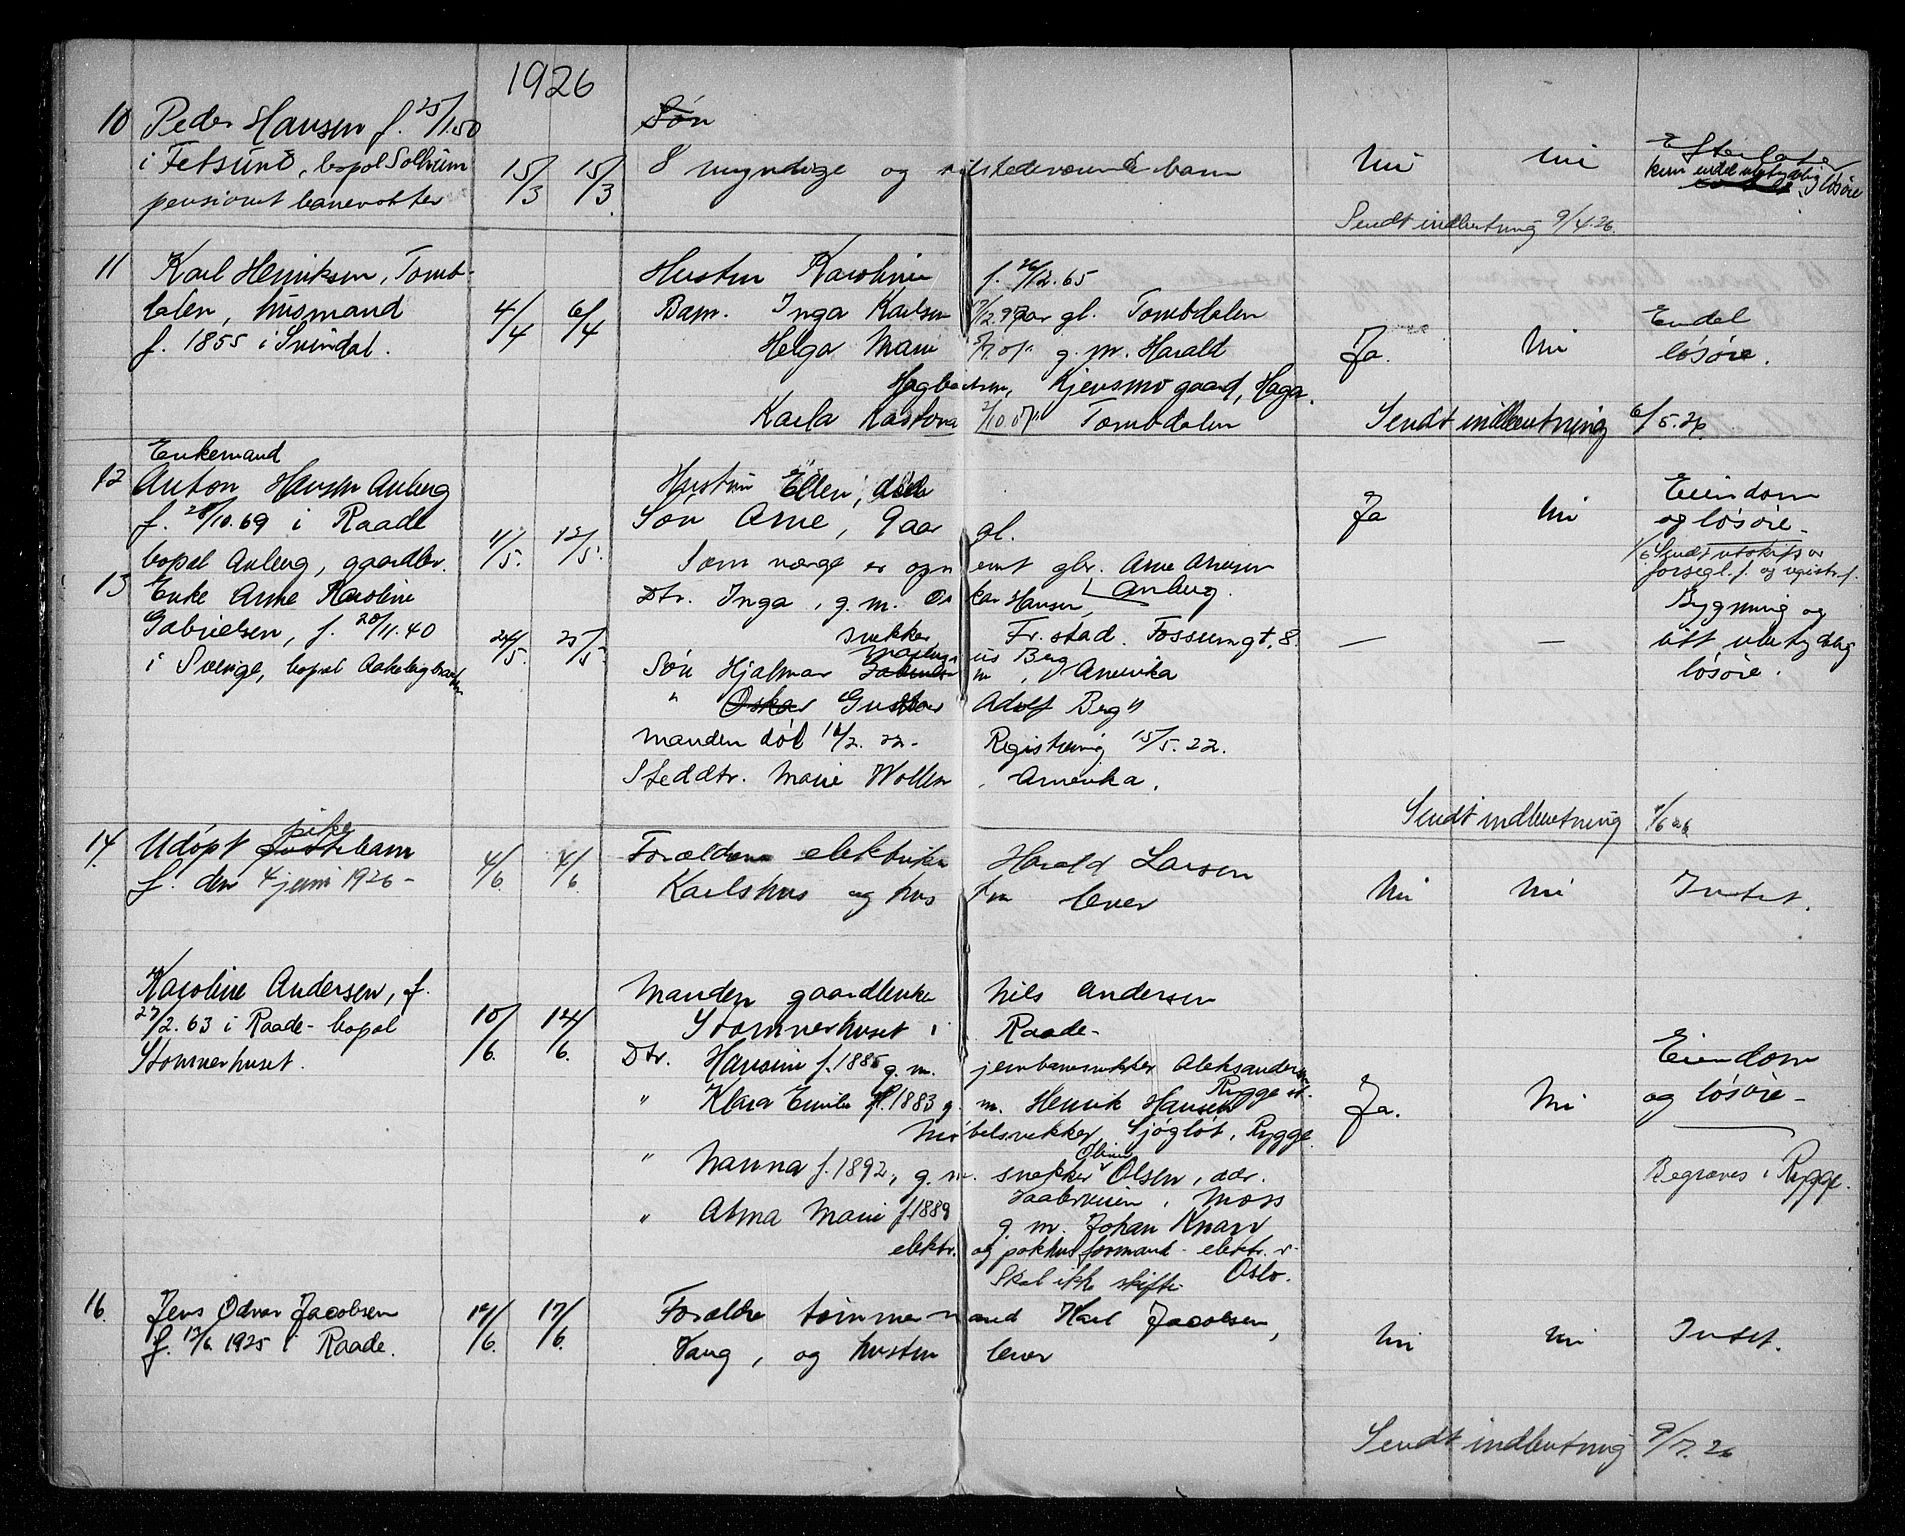 1926
10 Peder Hansen f. 25/1.50 Søn
i Fetsund, bopæl Solheim 15/3 15/3 8 myndige og tilstedeværende barn Nei Nei Efterlater
pensionert banevokter kun endel ubetydelig løsøre
Sendt indberetning 9/4.26.
11 Karl Henriksen, Tomb- Hustru Karoline f. 26/12.65
dalen, husmand 4/4 6/4 Barn. Inga Karlsen aar gl. Tombdalen Endel
f. 1855 i Svindal. Helga Marie g. m. Harald Ja. Nei løsøre.
Hagbartsen, Kjensmo gaard, Haga.
Karla Kastora 2/10.07 Tombdalen Sendt indberetning 6/5.26.
Enkemand
12 Anton Hansen Auberg Hustru Ellen, død Eiendom
f. 28/10.69 i Raade Søn Arne, 9 aar gl. Ja Nei og løsøre-
bopæl Auberg, gaardbr. 11/5. 12/5. Som værge er opnevnt gbr. Arne Arnesen Auberg. 1/6 Sendt utskrift av forsegl.f. og registr.f.
13 Enke Anne Karoline Dtr. Inga, g. m. Oskar Hansen, Bygning og
Gabrielsen, f. 20/11.40 24/5. 25/5. snekker Fr.stad. Fossumgt. 8. — — litt ubetydelig
i Sverige, bopæl Søn Hjalmar Berg, Amerika løsøre.
" Oskar Gustav Adolf Berg "
Manden død 12/2. 22. Registrering 15/5.22.
Steddtr. Marie Wollen, Amerika.
Sendt indberetning 4/6 26
14. Udøpt pikebarn 4/6. 4/6. Forældrene elektriker Harald Larsen
f. den 4 juni 1926- Karlshus og hustru lever Nei Nei Intet.
Karoline Andersen, f. Manden gaardbruker Nils Andersen
27/2.63 i Raade- bopæl 10/6. 14/6. Stomnerhuset i Raade-
Stomnerhuset. Dtr. Hansine f. 1885 g. m. jernbanesnekker Aleksandersen Rygge st. Eiendom
" Klara Emilie f. 1883 g. m. Henrik Hansen Ja. Nei og løsøre-
Møbelsnekker, Sjøgløt, Rygge.
" Nanna f. 1892, g. m. snekker Olsen, adr. Begraves i Rygge.
Moss
" Alma Marie f. 1889 g. m. Johan Knarr
elektr. og pakhusformand - elektr. v. Oslo.
Skal ikke skifte
16. Jens Odvar Jacobsen 14/6. 17/6. Forældre tømmermand Karl Jacobsen,
f. 12/6 1925 i Raade. Vang, og hustru lever Nei Nei Intet.
Sendt indberetning 9/7.26